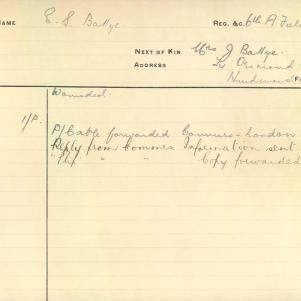 NAME E. S. Ballye REG. &C. 6th A Fiel
NEXT OF KIN Mrs J Ballye
ADDRESS Ormond
Wounded.
1/P. P/Cable forwarded Commrs - London
Reply from Commrs Information sent
" " " Copy forwarded